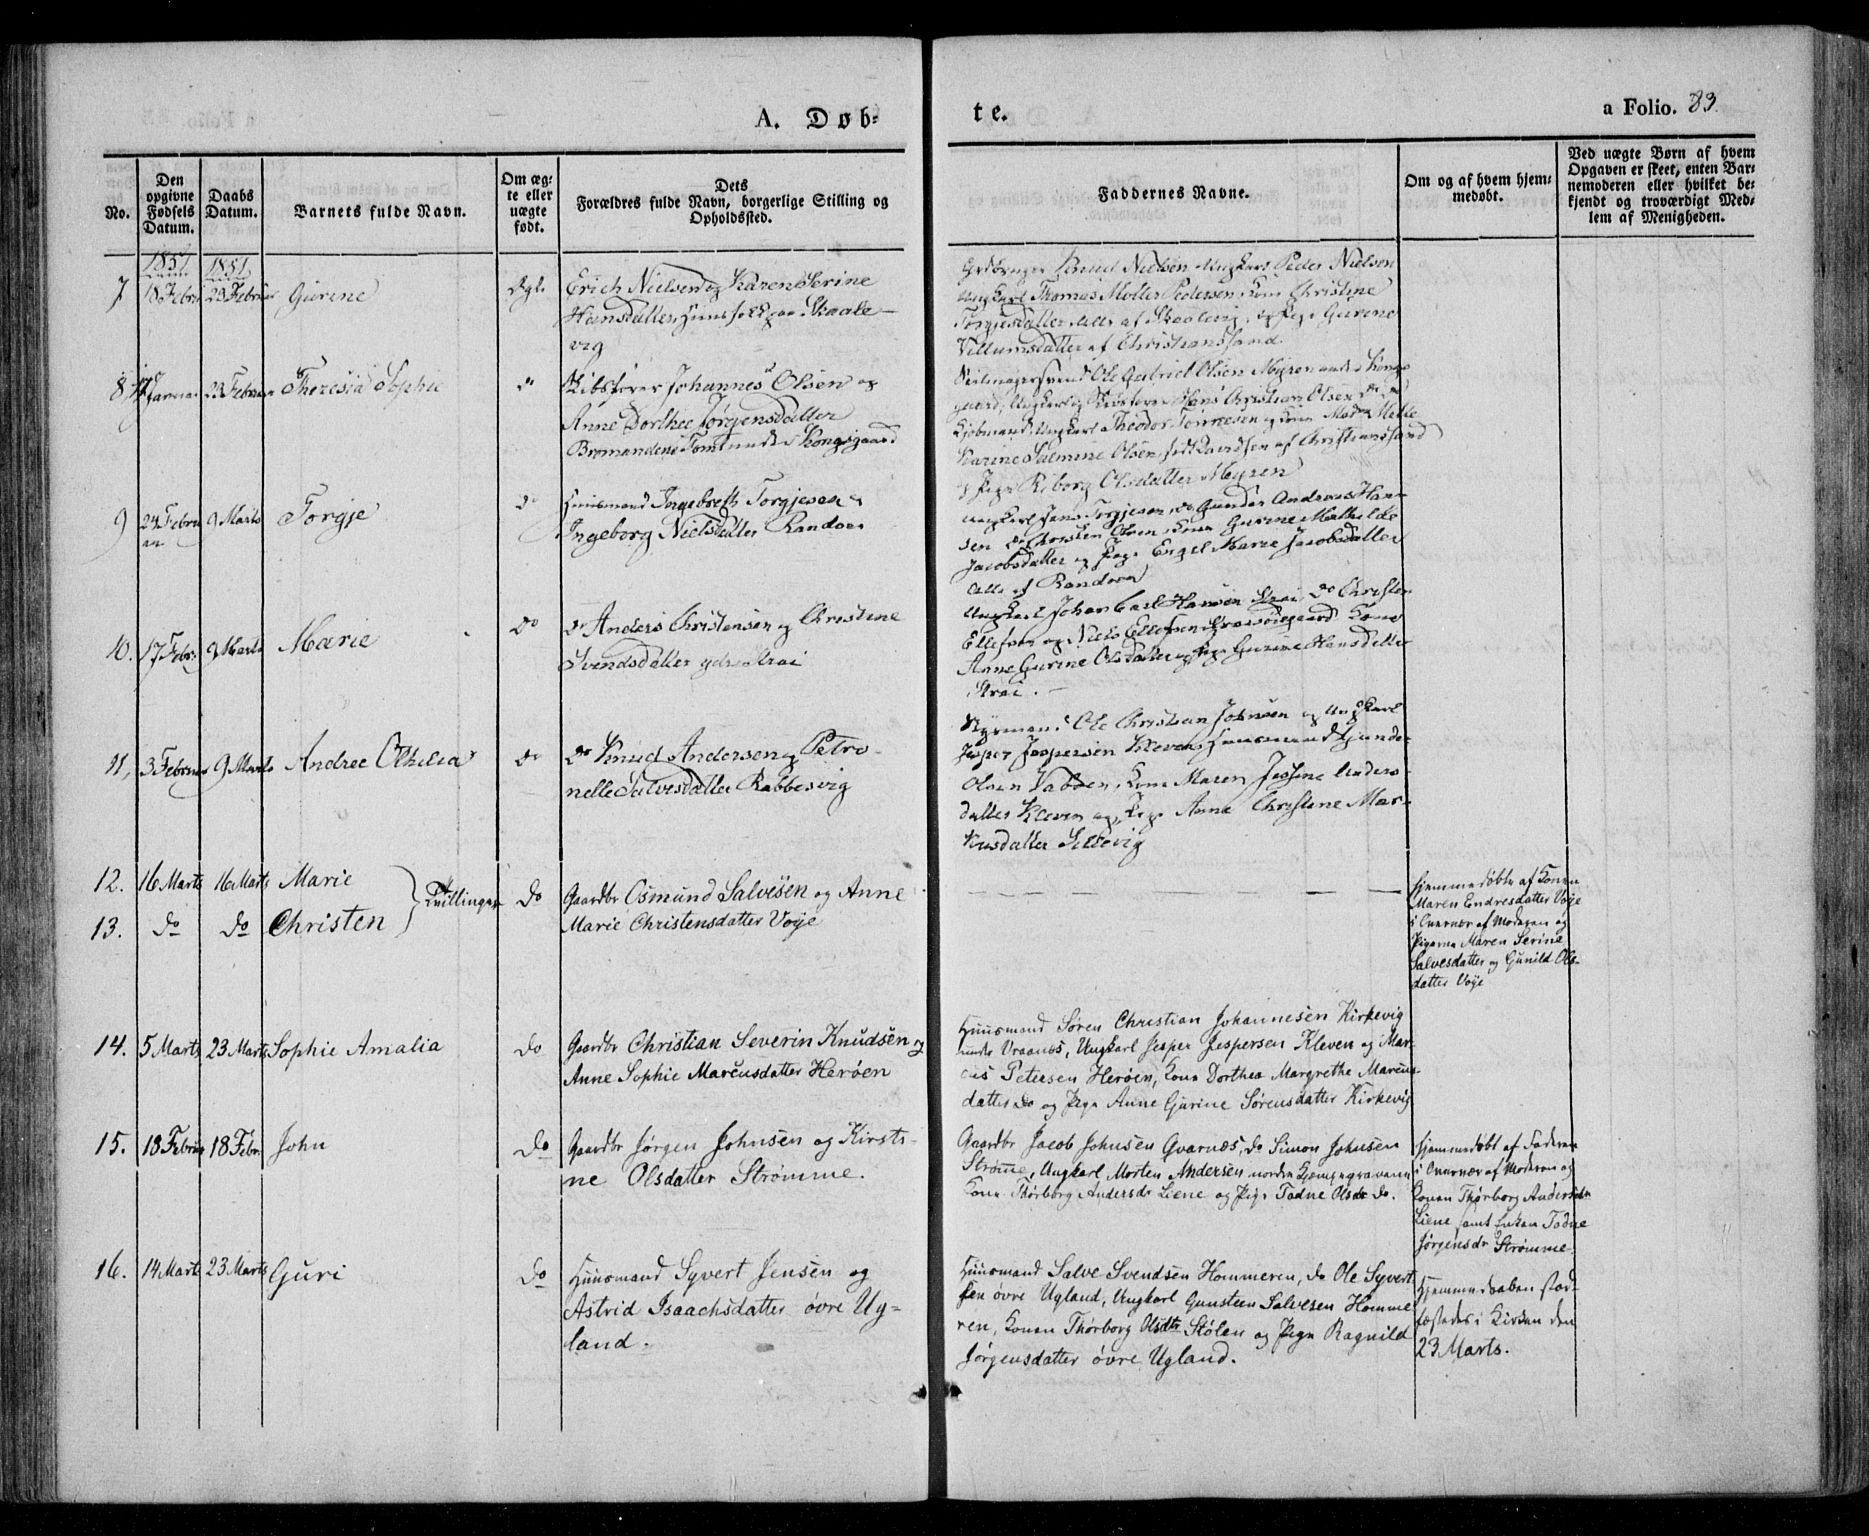 A. Døb-
te.
a Folio. 83.
No.
Den
opgivne
Fødsels
Datum.
Daabs
Datum.
Barnets fulde Navn.
Om æg-
te eller
uægte
født.
Dets
Forældres fulde Navn, borgerlige Stilling og
Opholdssted.
Faddernes Navne.
Om og af hvem hjem-
medøbt.
Ved uægte Børn af hvem
Opgaven er skeet, enten Bar-
nemoderen eller hvilket be-
kjendt og troværdigt Med-
lem af Menigheden.
1851
1851
7
18 Febru
23 Februar
Gurine
Ægte
Erich Nielsen og Karen Serine
Hansdatter, Huusfolk paa Skaale-
vig
Grdbruger Knud Nielsen Ungkarl Peder Nielsen
Ungkarl Thomas Møller Pedersen, Kone Christine
Torgjesdatter alle af Skaalevig, og Pige Gurine
Villumsdatter af Christianssand
8
Januar
23 Februar
Theresia Sophie
"
Skibsfører Johannes Olsen og
Anne Dorthee Jørgensdatter
Bromandens Tomt under Kongsgaard
Seilmagersvend Ole Gabriel Olsen Myren under Kongs-
gaard, Ungkarl og Skibsfører Hans Christian Olsen
Kjøbmand, Ungkarl Theodor Tønnesen og Kone Mette
Karine Salmine Olsen, født Davidsen af Christianssand
og Pige Riborg Olsdatter Myren
9
24 Febru
ar
9 Marts
Torgje
do
Huusmand Ingebreth Torgjesen &
Ingeborg Nielsdatter Randøen
Ungkarl Jens Torgjesen, do Gunder Andreas Han-
sen do Christen Olsen, Kone Gurine Mathilde
Jacobsdatter og Pige Engel Marie Jacobsdatter
Alle af Randøen
10.
17 Febr:
9 Marts
Marie
do
do Anders Christensen og Christine
Svendsdatter ydre Strai
Ungkarl Johan Carl Hansen Strai, do Christen
Ellefsen og Niels Ellefsen Kone
Anne Gurine Olsdatter og Pige Gurine Hansdatter
Strai. —
11,
3 Februar
9 Marts
Andree Othelia
do
do Knud Andersen og Petro-
nelle Salvesdatter Rabbesvig
Styrmand Ole Christian Johnsen og Ungkarl
Jesper Jespersen Kleven, Huusmand Gunder
Olsen Vabøen, Kone Maren Jessine Anders-
datter Kleven og Pige Anne Christine Mar-
kusdatter
12.
16 Marts
16 Marts
Marie
Tvillinger
do
Gaardbr Osmund Salvesen og Anne
Marie Christensdatter Voje
Hjemmedøbte af Konen
Maren Endresdatter Voje
i Overvær af Moderen og
Pigerne Maren Serine
Salvesdatter og Gunild Ols-
datter Voje
13.
do
do
Christen
14.
5 Marts
23 Marts
Sophie Amalia
do
Gaardbr Christian Severin Knudsen og
Anne Sophie Marcusdatter Herøen
Huusmand Søren Christian Johannesen Kirkevig
under Vraanes, Ungkarl Jesper Jespersen Kleven og Mar-
cus Petersen Herøen, Kone Dorthea Margrethe Marcus-
datter do og Pige Anne Gurine Sørensdatter Kirkevig
15.
18 Februar
18 Febr.
John
do
Gaardbr Jørgen Johnsen og Kirsti-
ne Olsdatter Strømme.
Gaardbr Jacob Johnsen Qvarnes, do Simon Johnsen
Strømme, Ungkarl Morten Andersen
Kone Thørborg Andersdr Liene og Pige Todne Olsdr do.
Hjemmedøbt af Faderen
i Overvær af Moderen og
Konen Thørborg Andersdr
Liene samt Enken Todne
Jørgensdr Strømme.
16.
14 Marts
23 Marts
Guri
do
Huusmand Syvert Jensen og
Astrid Isaachsdatter øvre Ug-
land.
Huusmand Salve Svendsen Hommeren, do Ole Syvert-
sen øvre Ugland, Ungkarl Gunsteen Salvesen Homme-
ren, Konen Thørborg Olsdtr Stølen og Pige Ragnild
Jørgensdatter øvre Ugland.
Hjemmedaaben stad-
fæstedes i Kirken den
23 Marts.